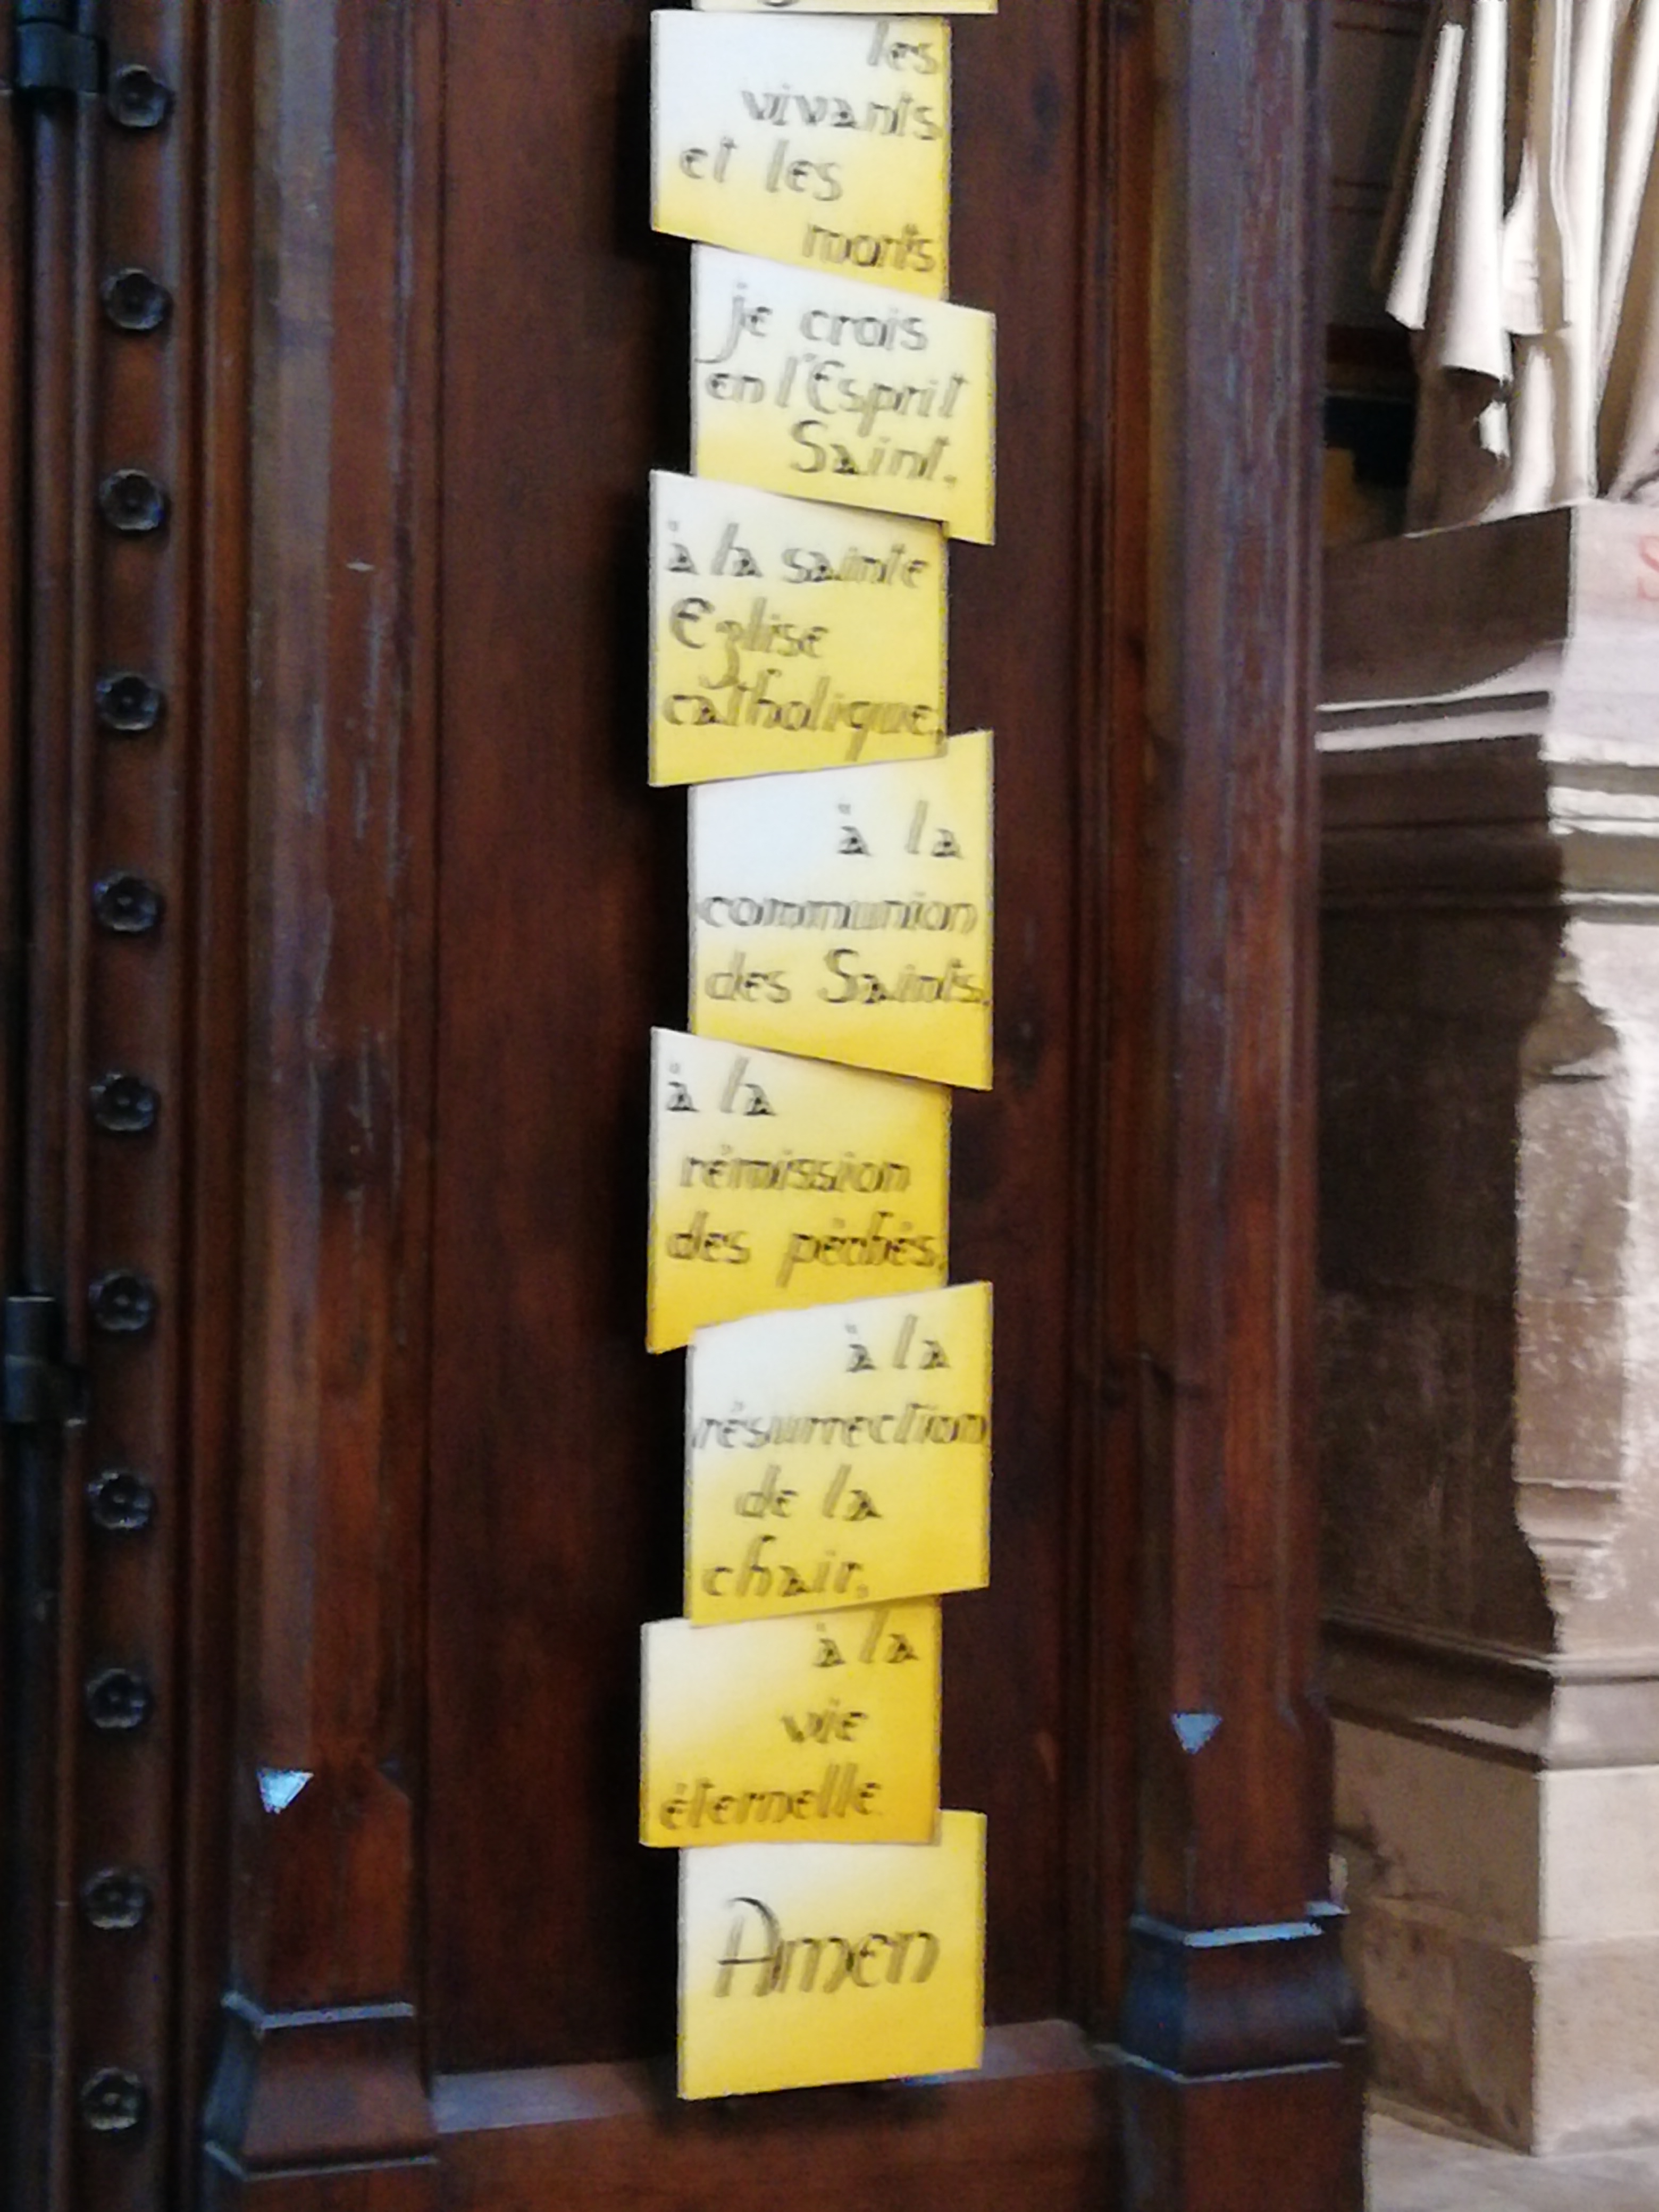 les
vivants
et les
morts
je crois
en l'Esprit
Saint,
à la sainte
Eglise
catholique,
à la
communion
des Saints,
à la
rémission
des péchés,
à la
résurrection
de la
chair,
à la
vie
éternelle
Amen